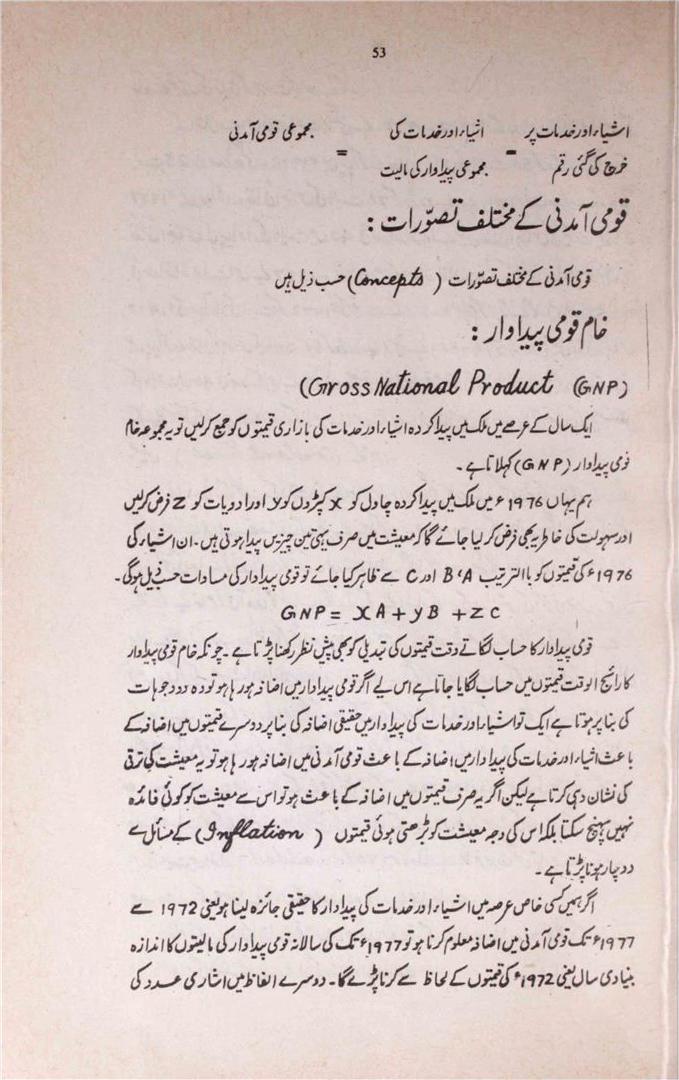 53
اشیاء اور خدمات پر = اشیاء اور خدمات کی = مجموعی قومی آمدنی
خرچ کی گئی رقم مجموعی پیداوار کی مالیت
قومی آمدنی کے مختلف تصوّرات :
قومی آمدنی کے مختلف تصوّرات (Concepts) حسب ذیل ہیں
خام قومی پیداوار :
(Gross National Product (GNP)
ایک سال کے عرصے میں ملک میں پیدا کردہ اشیاء اور خدمات کی بازاری قیمتوں کو جمع کر لیں تو یہ مجموعہ خام
قومی پیداوار (GNP) کہلاتا ہے ۔
ہم یہاں 1976ء میں ملک میں پیدا کردہ چاول کو x کپڑوں کو y اور ادویات کو z فرض کر لیں
اور سہولت کی خاطر یہ بھی فرض کر لیا جائے گا کہ معیشت میں صرف یہی تین چیزیں پیدا ہوتی ہیں ۔ ان اشیاء کی
1976ء کی قیمتوں کو بالترتیب A، B اور C سے ظاہر کیا جائے تو قومی پیداوار کی مساوات حسب ذیل ہوگی ۔
GNP = XA + yB + ZC
قومی پیداوار کا حساب لگاتے وقت قیمتوں کی تبدیلی کو بھی پیش نظر رکھنا پڑتا ہے ۔ چونکہ خام قومی پیداوار
کا رائج الوقت قیمتوں میں حساب لگایا جاتا ہے اس لیے اگر قومی پیداوار میں اضافہ ہو رہا ہو تو وہ دو وجوہات
کی بنا پر ہوتا ہے ایک تو اشیاء اور خدمات کی پیداوار میں حقیقی اضافہ کی بنا پر دوسرے قیمتوں میں اضافہ کے
باعث اشیاء اور خدمات کی پیداوار میں اضافہ کے باعث قومی آمدنی میں اضافہ ہو رہا ہو تو یہ معیشت کی ترقی
کی نشان دہی کرتا ہے لیکن اگر یہ صرف قیمتوں میں اضافہ کے باعث ہو تو اس سے معیشت کو کوئی فائدہ
نہیں پہنچ سکتا بلکہ اس کی وجہ معیشت کو بڑھتی ہوئی قیمتوں (Inflation) کے مسائل سے
دو چار ہونا پڑتا ہے ۔
اگر ہمیں کسی خاص عرصہ میں اشیاء اور خدمات کی پیداوار کا حقیقی جائزہ لینا ہو یعنی 1972 سے
1977ء تک قومی آمدنی میں اضافہ معلوم کرنا ہو تو 1977ء تک کی سالانہ قومی پیداوار کی مالیتوں کا اندازہ
بنیادی سال یعنی 1972ء کی قیمتوں کے لحاظ سے کرنا پڑے گا ۔ دوسرے الفاظ میں اشاری عدد کی